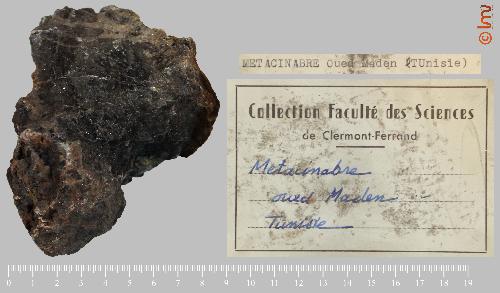 METACINABRE Oued Maden (TUnisie)
Collection Faculté des Sciences
de Clermont-Ferrand
Metacinabre
oued Maden
Tunisie
0 1 2 3 4 5 6 7 8 9 10 11 12 13 14 15 16 17 18 19